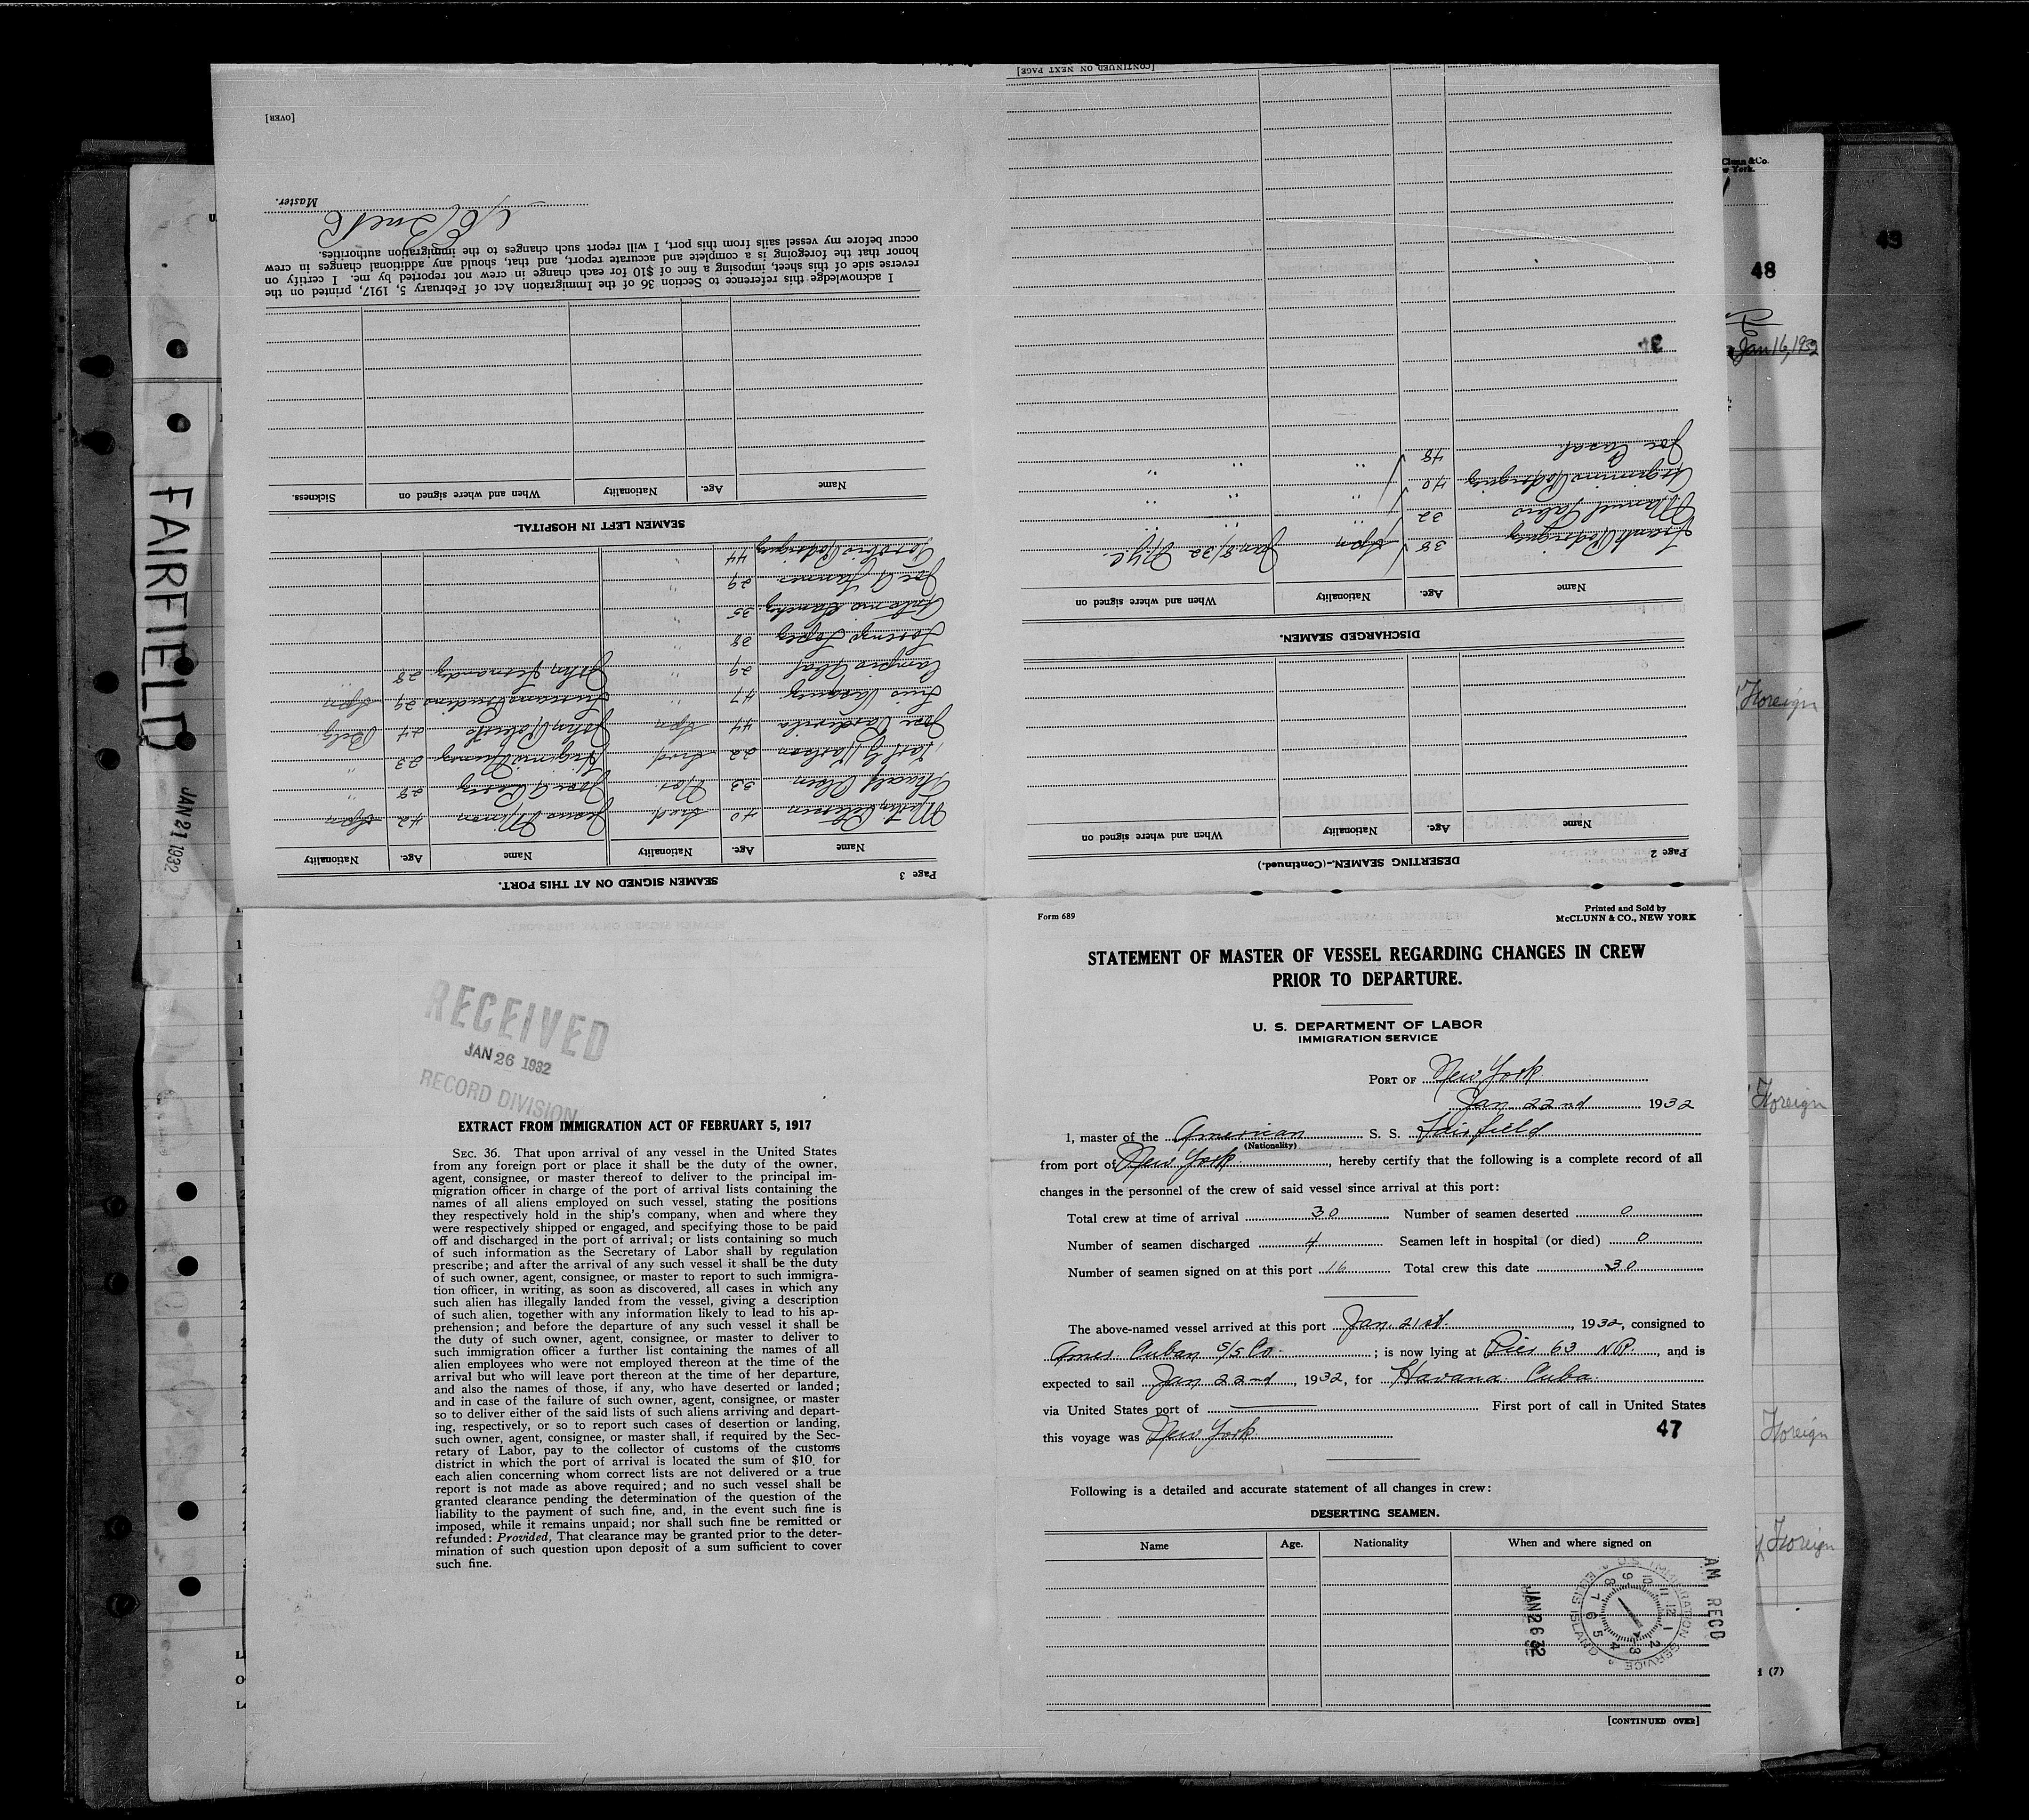 Form 689
Printed and Sold by
McCLUNN & CO., NEW YORK
STATEMENT OF MASTER OF VESSEL REGARDING CHANGES IN CREW
PRIOR TO DEPARTURE.
U. S. DEPARTMENT OF LABOR
IMMIGRATION SERVICE
PORT OF New York
Jan 22nd 1932
I, master of the American S. S. Fairfield
(Nationality)
from port of New York, hereby certify that the following is a complete record of all
changes in the personnel of the crew of said vessel since arrival at this port:
Total crew at time of arrival 30 Number of seamen deserted 0
Number of seamen discharged 4 Seamen left in hospital (or died) 0
Number of seamen signed on at this port 16 Total crew this date 30
The above-named vessel arrived at this port Jan 21st, 1932, consigned to
Amer. Cuban S/S Co. ; is now lying at Pier 63 NR, and is
expected to sail Jan 22nd, 1932, for Havana Cuba
via United States port of First port of call in United States
this voyage was New York
47
Following is a detailed and accurate statement of all changes in crew:
DESERTING SEAMEN.
Name Age. Nationality When and where signed on
JAN 26 32
AM RECD
U.S. IMMIGRATION SERVICE
ELLIS ISLAND
[CONTINUED OVER]
Page 2
DESERTING SEAMEN.—(Continued.)
Name Age. Nationality When and where signed on
DISCHARGED SEAMEN.
Name Age. Nationality When and where signed on
Frank Rodriguez 38 Span Jan 8/32 N.Y.C.
Manuel 32 " " "
Rodriguez 40 " " "
Joe Casal 48 " " "
34
[CONTINUED ON NEXT PAGE]
Page 3
SEAMEN SIGNED ON AT THIS PORT.
Name Age. Nationality Name Age. Nationality
40 Swed 42 Span
Olsen 33 Nor. 28 "
22 Swed 23 "
Jose 44 Span John Roberts 24 Belg
Luis Vasquez 47 " 29 Span
29 " John Hernandez 28 "
Lorenzo Lopez 38 "
Antonio Sanchez 35 "
Joe 29 "
Rodriguez 44 "
SEAMEN LEFT IN HOSPITAL.
Name Age. Nationality When and where signed on Sickness.
I acknowledge this reference to Section 36 of the Immigration Act of February 5, 1917, printed on the
reverse side of this sheet, imposing a fine of $10 for each change in crew not reported by me. I certify on
honor that the foregoing is a complete and accurate report, and that, should any additional changes in crew
occur before my vessel sails from this port, I will report such changes to the immigration authorities.
Master.
[OVER]
RECEIVED
JAN 26 1932
RECORD DIVISION
EXTRACT FROM IMMIGRATION ACT OF FEBRUARY 5, 1917
SEC. 36. That upon arrival of any vessel in the United States
from any foreign port or place it shall be the duty of the owner,
agent, consignee, or master thereof to deliver to the principal im-
migration officer in charge of the port of arrival lists containing the
names of all aliens employed on such vessel, stating the positions
they respectively hold in the ship's company, when and where they
were respectively shipped or engaged, and specifying those to be paid
off and discharged in the port of arrival; or lists containing so much
of such information as the Secretary of Labor shall by regulation
prescribe; and after the arrival of any such vessel it shall be the duty
of such owner, agent, consignee, or master to report to such immigra-
tion officer, in writing, as soon as discovered, all cases in which any
such alien has illegally landed from the vessel, giving a description
of such alien, together with any information likely to lead to his ap-
prehension; and before the departure of any such vessel it shall be
the duty of such owner, agent, consignee, or master to deliver to
such immigration officer a further list containing the names of all
alien employees who were not employed thereon at the time of the
arrival but who will leave port thereon at the time of her departure,
and also the names of those, if any, who have deserted or landed;
and in case of the failure of such owner, agent, consignee, or master
so to deliver either of the said lists of such aliens arriving and depart-
ing, respectively, or so to report such cases of desertion or landing,
such owner, agent, consignee, or master shall, if required by the Sec-
retary of Labor, pay to the collector of customs of the customs
district in which the port of arrival is located the sum of $10. for
each alien concerning whom correct lists are not delivered or a true
report is not made as above required; and no such vessel shall be
granted clearance pending the determination of the question of the
liability to the payment of such fine, and, in the event such fine is
imposed, while it remains unpaid; nor shall such fine be remitted or
refunded: Provided, That clearance may be granted prior to the deter-
mination of such question upon deposit of a sum sufficient to cover
such fine.
FAIRFIELD
JAN 21 1932
48
49
Jan 16, 1932
Foreign
Foreign
Foreign
Foreign
(7)